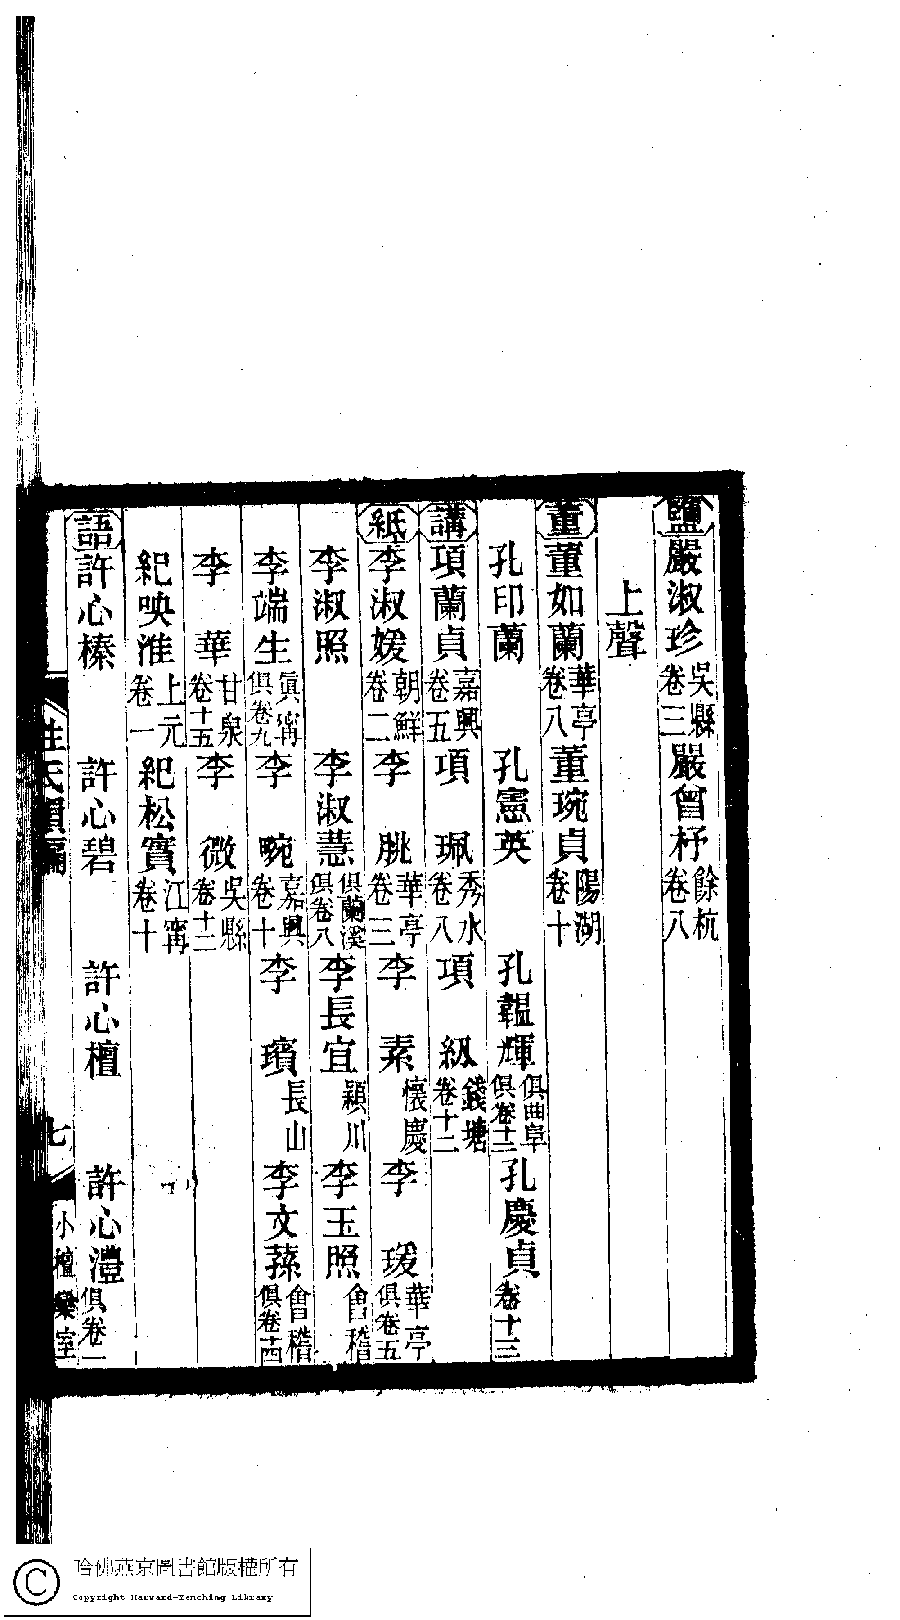 鹽嚴淑珍吳縣卷三 嚴曾杼餘杭卷八
上聲
董董如蘭華亭卷八 董琬貞陽湖卷十
孔印蘭 孔憲英 孔韞輝俱曲阜俱卷十二 孔慶貞卷十三
講項蘭貞嘉興卷五 項珮秀水卷八 項紉錢塘卷十二
紙李淑媛朝鮮卷二 李朓華亭卷三 李素懷慶 李瑗華亭俱卷五
李淑照 李淑慧俱蘭溪俱卷八 李長宜潁川 李玉照會稽
李端生眞甯俱卷九 李畹嘉興卷十 李璸長山 李文蓀會稽俱卷十四
李華甘泉卷十五 李微吳縣卷十二
紀映淮上元卷一 紀松實江甯卷十
語許心榛 許心碧 許心檀 許心澧俱卷一
姓氏韻編
七
小檀欒室
哈佛燕京圖書館版權所有
Copyright Harvard-Yenching Library